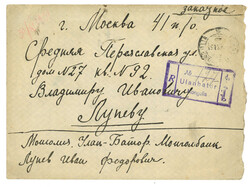 заказное
г. Москва 41 п/о
Средняя Переяславская ул
дом N27 кв. N92.
Владимиру Ивановичу
Луневу
R
Ulanbator
Монголия, Улан-Батор, Монголбанк
Лунев Иван Федорович.